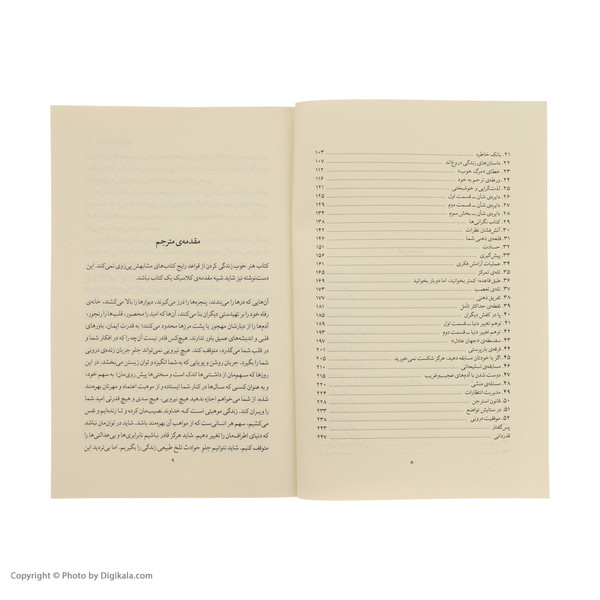 ۲۱. بانک خاطره ۱۰۳
۲۲. داستان‌های زندگی دروغ‌اند ۱۰۷
۲۳. خطای «مرگ خوب» ۱۱۲
۲۴. ورطه‌ی ترحم به خود ۱۱۶
۲۵. لذت‌گرایی و خوشبختی ۱۲۱
۲۶. دایره‌ی شأن ــ قسمت اول ۱۲۵
۲۷. دایره‌ی شأن ــ قسمت دوم ۱۳۰
۲۸. دایره‌ی شأن ــ بخش سوم ۱۳۴
۲۹. کتاب نگرانی‌ها ۱۳۸
۳۰. آتش‌فشان نظرات ۱۴۲
۳۱. قلعه‌ی ذهنی شما ۱۴۶
۳۲. حسادت ۱۵۱
۳۳. پیش‌گیری ۱۵۶
۳۴. عملیات آرامش فکری ۱۶۱
۳۵. تله‌ی تمرکز ۱۶۵
۳۶. طبق قاعده: کمتر بخوانید، اما دوبار بخوانید ۱۶۹
۳۷. تله‌ی تعصب ۱۷۳
۳۸. تفریق ذهنی ۱۷۷
۳۹. نقطه‌ی حداکثر تأمل ۱۸۱
۴۰. پا در کفش دیگران ۱۸۵
۴۱. توهم تغییر دنیا ــ قسمت اول ۱۸۹
۴۲. توهم تغییر دنیا ــ قسمت دوم ۱۹۳
۴۳. سفسطه‌ی «جهان عادل» ۱۹۷
۴۴. فرقه‌ی باربرستی ۲۰۱
۴۵. اگر با خودتان مسابقه دهید، هرگز شکست نمی‌خورید ۲۰۵
۴۶. مسابقه‌ی تسلیحاتی ۲۱۰
۴۷. دوست شدن با آدم‌های عجیب‌وغریب ۲۱۵
۴۸. مسئله‌ی منشی ۲۲۰
۴۹. مدیریت انتظارات ۲۲۴
۵۰. قانون استرجن ۲۲۸
۵۱. در ستایش تواضع ۲۳۳
۵۲. موفقیت درونی ۲۳۸
پس‌گفتار ۲۴۲
قدردانی ۲۴۷
۸
مقدمه‌ی مترجم
کتاب هنر خوب زندگی کردن از قواعد رایج کتاب‌های مشابهش پیروی نمی‌کند. این
دست‌نوشته نیز شاید شبیه مقدمه‌ی کلاسیک یک کتاب نباشد.
آن‌هایی که درها را می‌بندند، پنجره‌ها را درز می‌گیرند، دیوارها را بالا می‌کشند، خانه‌ی
رفاه خود را بر تهیدستی دیگران بنا می‌کنند، آن‌ها که امید را محصور، قلب‌ها را رنجور،
آدم‌ها را از دیارشان مهجور یا پشت مرزها محدود می‌کنند؛ به قدرتِ ایمان، باورهای
قلبی و اندیشه‌های عمیق باور ندارند. هیچ‌کس قادر نیست آنچه را که در افکار شما و
در قلب شما می‌گذرد، متوقف کند. هیچ نیرویی نمی‌تواند جلو جریان زندگی درونی
شما را بگیرد. جریان روشن و پویایی که به شما انگیزه و توان زیستن می‌بخشد. در این
روزها که سهم‌مان از داشته‌ها اندک است و سختی‌ها پیش روی‌مان؛ به سهم خود،
و به عنوان کسی که سال‌ها در کنار شما ایستاده و از موهبت اعتماد و مهرتان بهره‌مند
شده، از شما می‌خواهم اجازه ندهید هیچ نیرویی، هیچ سدی و هیچ قدرتی امید شما
را ویران کند. زندگی موهبتی است که خداوند نصیب‌مان کرده و تا زنده‌ایم و نفس
می‌کشیم، سهم هر انسانی‌ست که از مواهب آن بهره‌مند باشد. شاید در توان‌مان نباشد
که دنیای اطراف‌مان را تغییر دهیم. شاید هرگز قادر نباشیم نابرابری‌ها و بی‌عدالتی‌ها را
متوقف کنیم. شاید نتوانیم جلو حوادث تلخ طبیعی زندگی را بگیریم. اما بی‌تردید این
۹
Copyright © Photo by Digikala.com